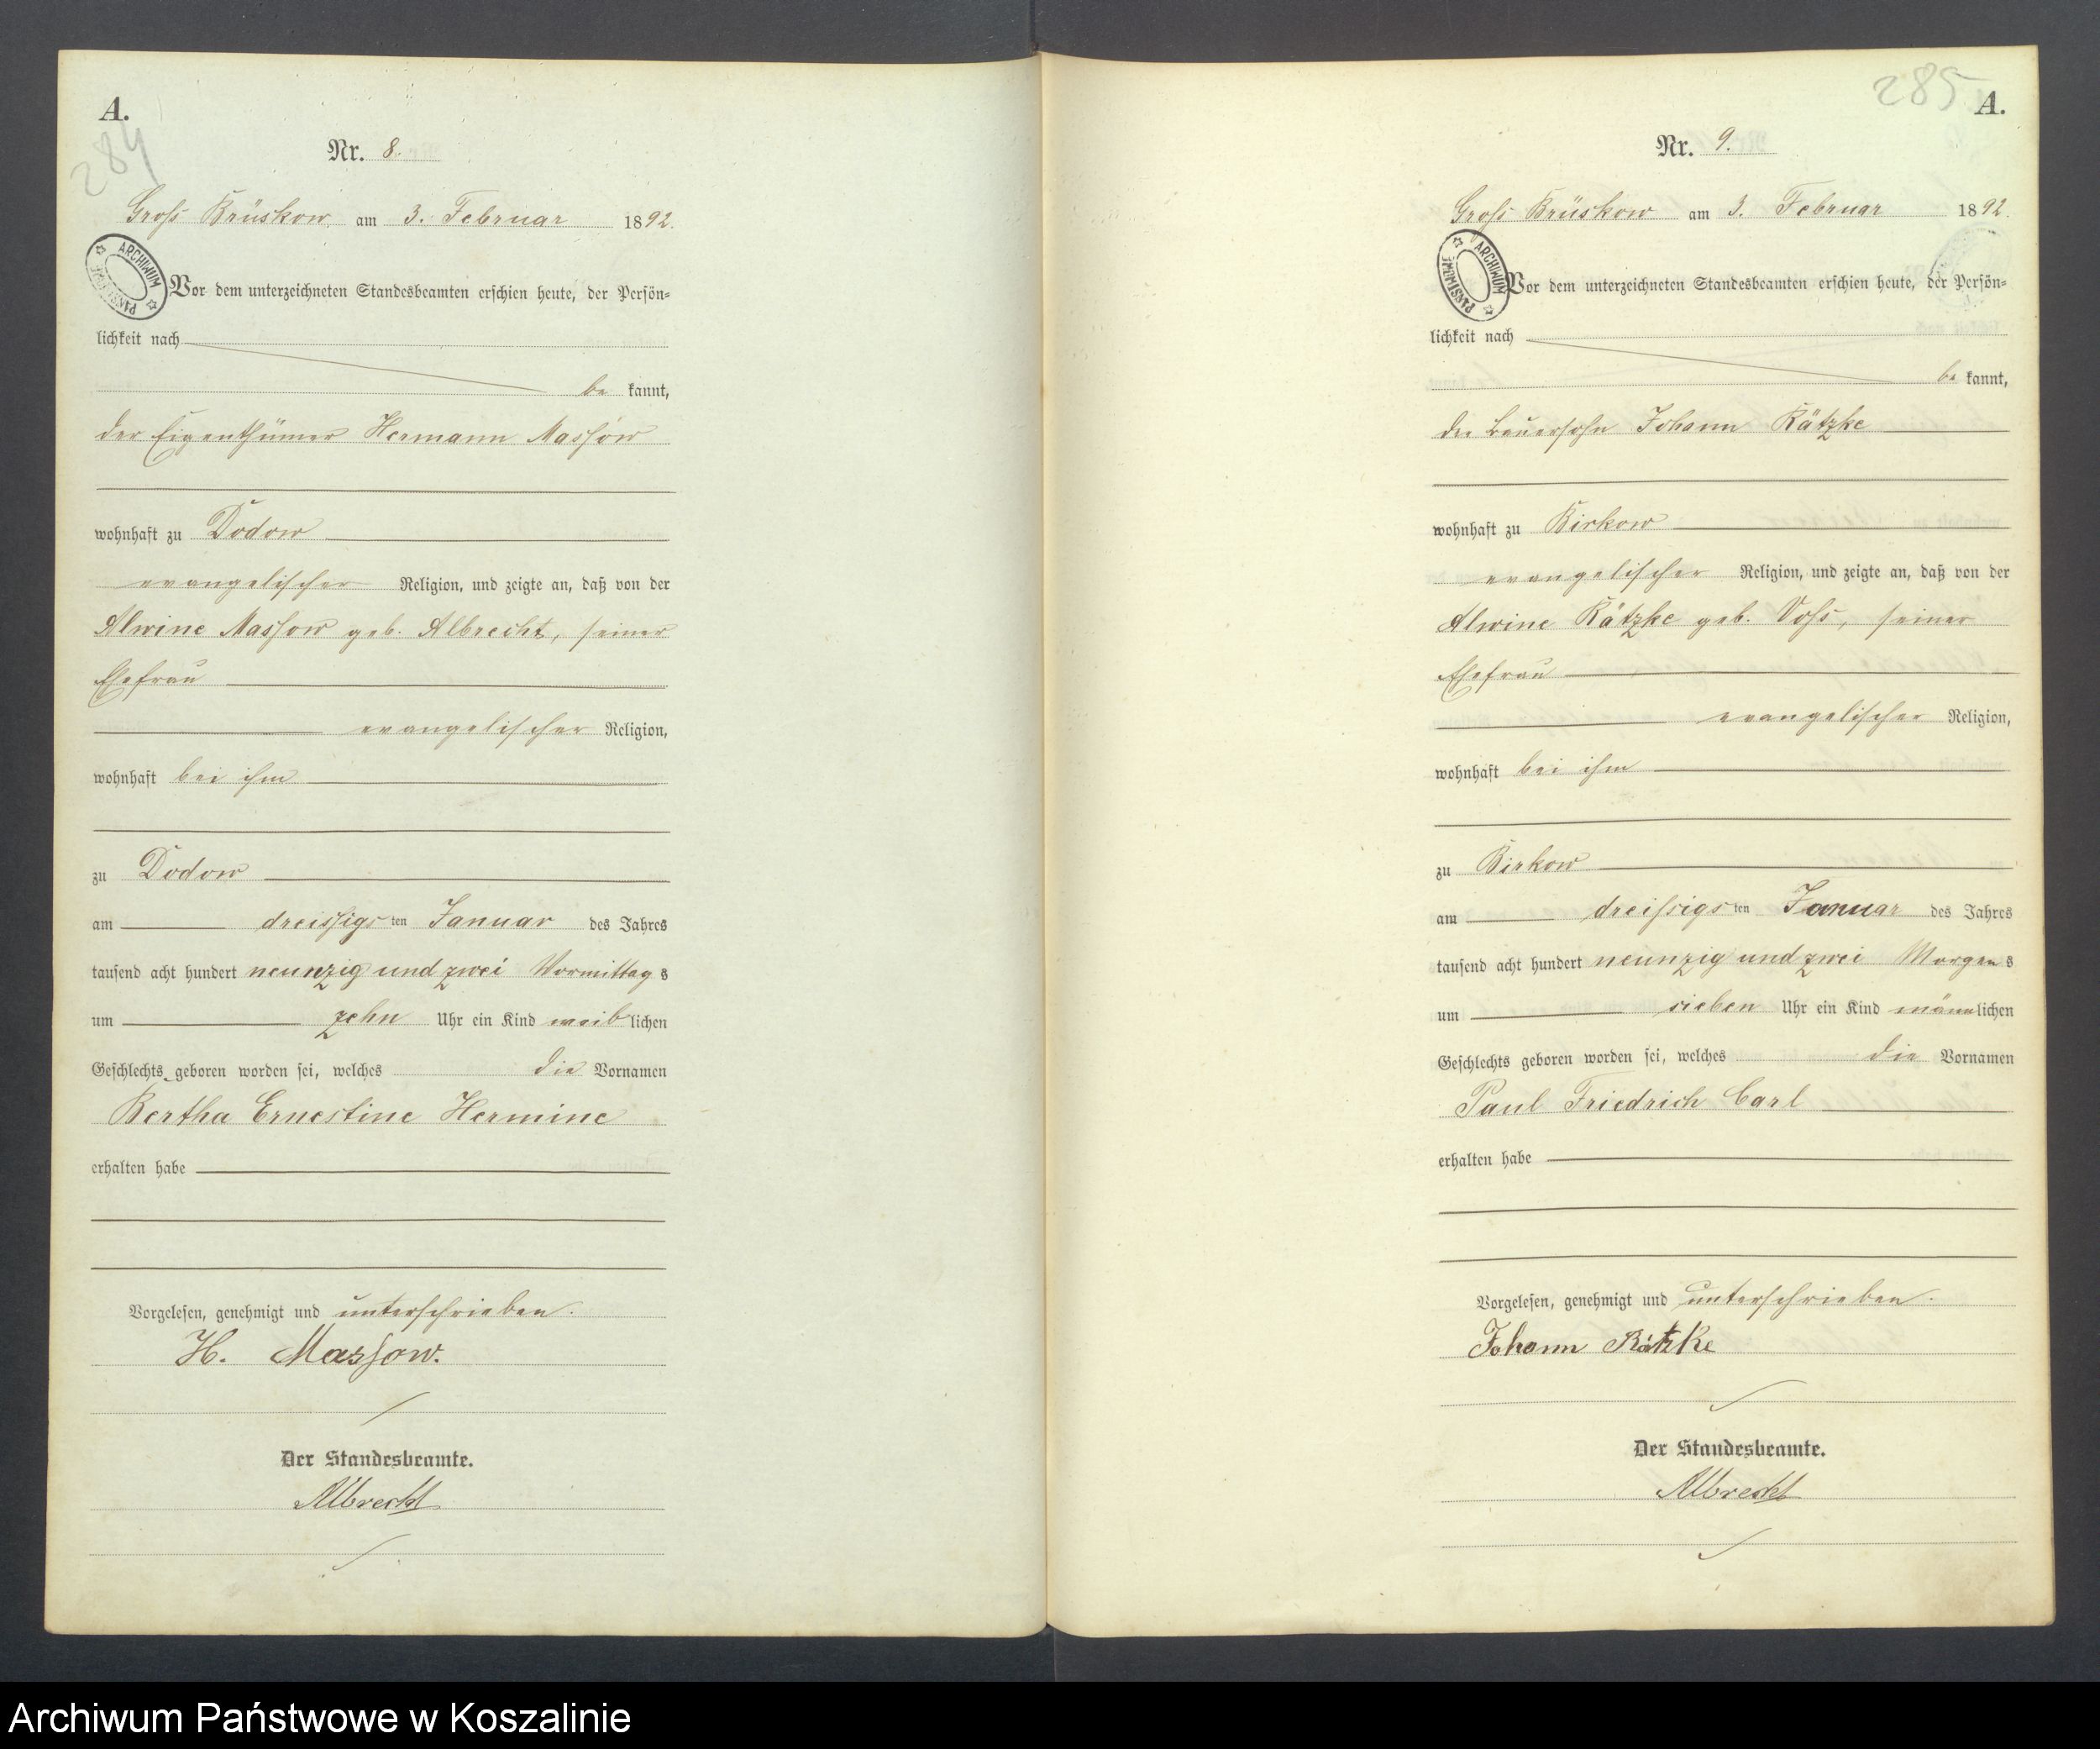 A.
284
Nr. 8.
Groß Brüskow am 3. Februar 1892.
ARCHIWUM PAŃSTWOWE
Vor dem unterzeichneten Standesbeamten erschien heute, der Persön=
lichkeit nach
be kannt,
der Eigenthümer Hermann Massow
wohnhaft zu Dodow
evangelischer Religion, und zeigte an, daß von der
Alwine Massow geb. Albrecht, seiner
Ehefrau
evangelischer Religion,
wohnhaft bei ihm
zu Dodow
am dreissigsten Januar des Jahres
tausend acht hundert neunzig und zwei Vormittags
um zehn Uhr ein Kind weiblichen
Geschlechts geboren worden sei, welches die Vornamen
Bertha Ernestine Hermine
erhalten habe
Vorgelesen, genehmigt und unterschrieben.
H. Massow.
Der Standesbeamte.
Albrecht
285
A.
Nr. 9.
Groß Brüskow am 3. Februar 1892.
ARCHIWUM PAŃSTWOWE
Vor dem unterzeichneten Standesbeamten erschien heute, der Persön=
lichkeit nach
be kannt,
der Bauersohn Johann Rätzke
wohnhaft zu Birkow
evangelischer Religion, und zeigte an, daß von der
Alwine Rätzke geb. Voß, seiner
Ehefrau
evangelischer Religion,
wohnhaft bei ihm
zu Birkow
am dreissigsten Januar des Jahres
tausend acht hundert neunzig und zwei Morgens
um sieben Uhr ein Kind männlichen
Geschlechts geboren worden sei, welches die Vornamen
Paul Friedrich Carl
erhalten habe
Vorgelesen, genehmigt und unterschrieben.
Johann Rätzke
Der Standesbeamte.
Albrecht
Archiwum Państwowe w Koszalinie